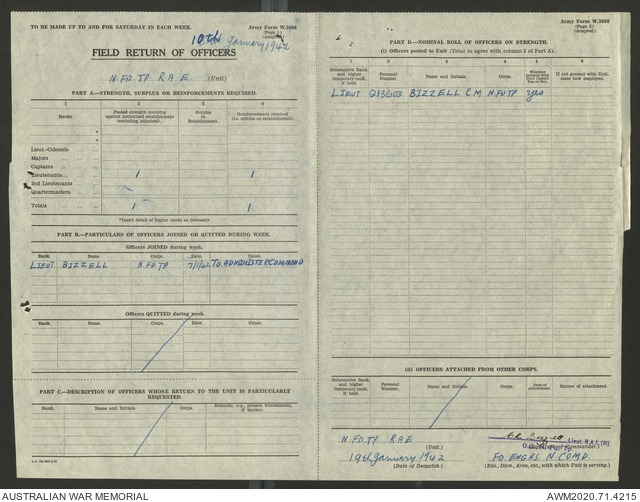 TO BE MADE UP TO AND FOR SATURDAY IN EACH WEEK.
Army Form W.3008
(Page 1.)
(Adapted.)
10th January 1942
FIELD RETURN OF OFFICERS
N.FD.TP. R.A.E (Unit)
PART A.—STRENGTH, SURPLUS OR REINFORCEMENTS REQUIRED.
1 2 3 4
Ranks. Posted strength counting against authorized establishments (excluding attached). Surplus to Establishment. Reinforcements required (i.e. deficits on establishment).
Lieut.-Colonels
Majors
Captains
Lieutenants 1 1
2nd Lieutenants
Quartermasters
Totals 1 1
*Insert detail of higher ranks as necessary.
PART B.—PARTICULARS OF OFFICERS JOINED OR QUITTED DURING WEEK.
Officers JOINED during week.
Rank. Name. Corps. Date. Cause.
LIEUT BIZZELL N.FD.TP 7/1/42 TO ADMINISTER COMMAND
Officers QUITTED during week.
Rank. Name. Corps. Date. Cause.
PART C.—DESCRIPTION OF OFFICERS WHOSE RETURN TO THE UNIT IS PARTICULARLY
REQUESTED.
Rank. Name and Initials. Corps. Remarks (e.g., present whereabouts, if known).
Army Form W.3008
(Page 2.)
(Adapted.)
PART D.—NOMINAL ROLL OF OFFICERS ON STRENGTH.
(i) Officers posted to Unit (Total to agree with column 2 of Part A).
1 2 3 4 5 6
Substantive Rank and higher temporary rank, if held. Personal Number. Name and Initials. Corps. Whether present with Unit (Insert Yes or No). If not present with Unit, state how employed.
LIEUT Q13603 BIZZELL C.M N.FD TP yes
(ii) OFFICERS ATTACHED FROM OTHER CORPS.
Substantive Rank and higher temporary rank, if held. Personal Number. Name and Initials. Corps. Date of attachment. Nature of attachment.
N.FD.TP R.A.E Lieut. R.A.E. (M)
(Unit.) Commander.)
19th January 1942 FO ENGRS. N COMD.
(Date of Despatch.) (Bde., Divn., Area, etc., with which Unit is serving.)
AUSTRALIAN WAR MEMORIAL AWM2020.71.4215